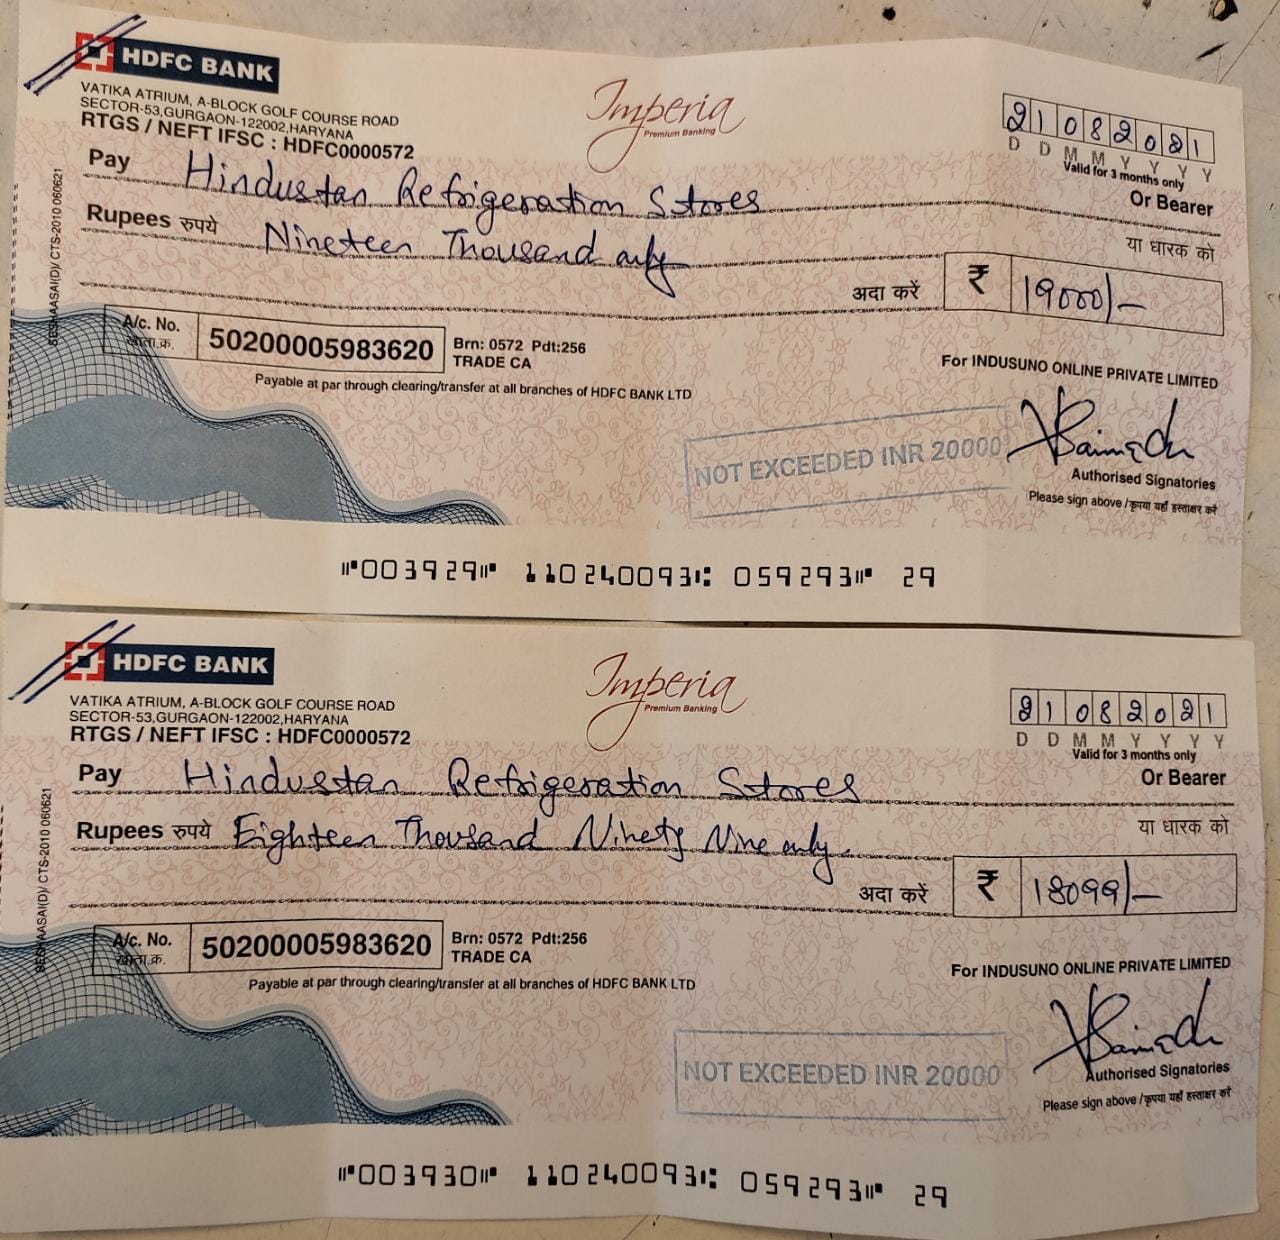 HDFC BANK
VATIKA ATRIUM, A-BLOCK GOLF COURSE ROAD
SECTOR-53,GURGAON-122002,HARYANA
RTGS / NEFT IFSC : HDFC0000572
Imperia
Premium Banking
21082021
D D M M Y Y Y Y
Valid for 3 months only
Pay Hindustan Refrigeration Sstores Or Bearer
Rupees रुपये Nineteen Thousand only या धारक को
अदा करें ₹ 19000/-
A/c. No. खाता.क्र. 50200005983620 Brn: 0572 Pdt:256
TRADE CA
Payable at par through clearing/transfer at all branches of HDFC BANK LTD
For INDUSUNO ONLINE PRIVATE LIMITED
NOT EXCEEDED INR 20000
Authorised Signatories
Please sign above /कृपया यहाँ हस्ताक्षर करें
CTS-2010 060621
⑈003929⑈ 110240093⑆ 059293⑈ 29
HDFC BANK
VATIKA ATRIUM, A-BLOCK GOLF COURSE ROAD
SECTOR-53,GURGAON-122002,HARYANA
RTGS / NEFT IFSC : HDFC0000572
Imperia
Premium Banking
21082021
D D M M Y Y Y Y
Valid for 3 months only
Pay Hindustan Refrigeration Sstores Or Bearer
Rupees रुपये Eighteen Thousand Ninety Nine only. या धारक को
अदा करें ₹ 18099/-
A/c. No. खाता.क्र. 50200005983620 Brn: 0572 Pdt:256
TRADE CA
Payable at par through clearing/transfer at all branches of HDFC BANK LTD
For INDUSUNO ONLINE PRIVATE LIMITED
NOT EXCEEDED INR 20000
Authorised Signatories
Please sign above /कृपया यहाँ हस्ताक्षर करें
CTS-2010 060621
⑈003930⑈ 110240093⑆ 059293⑈ 29